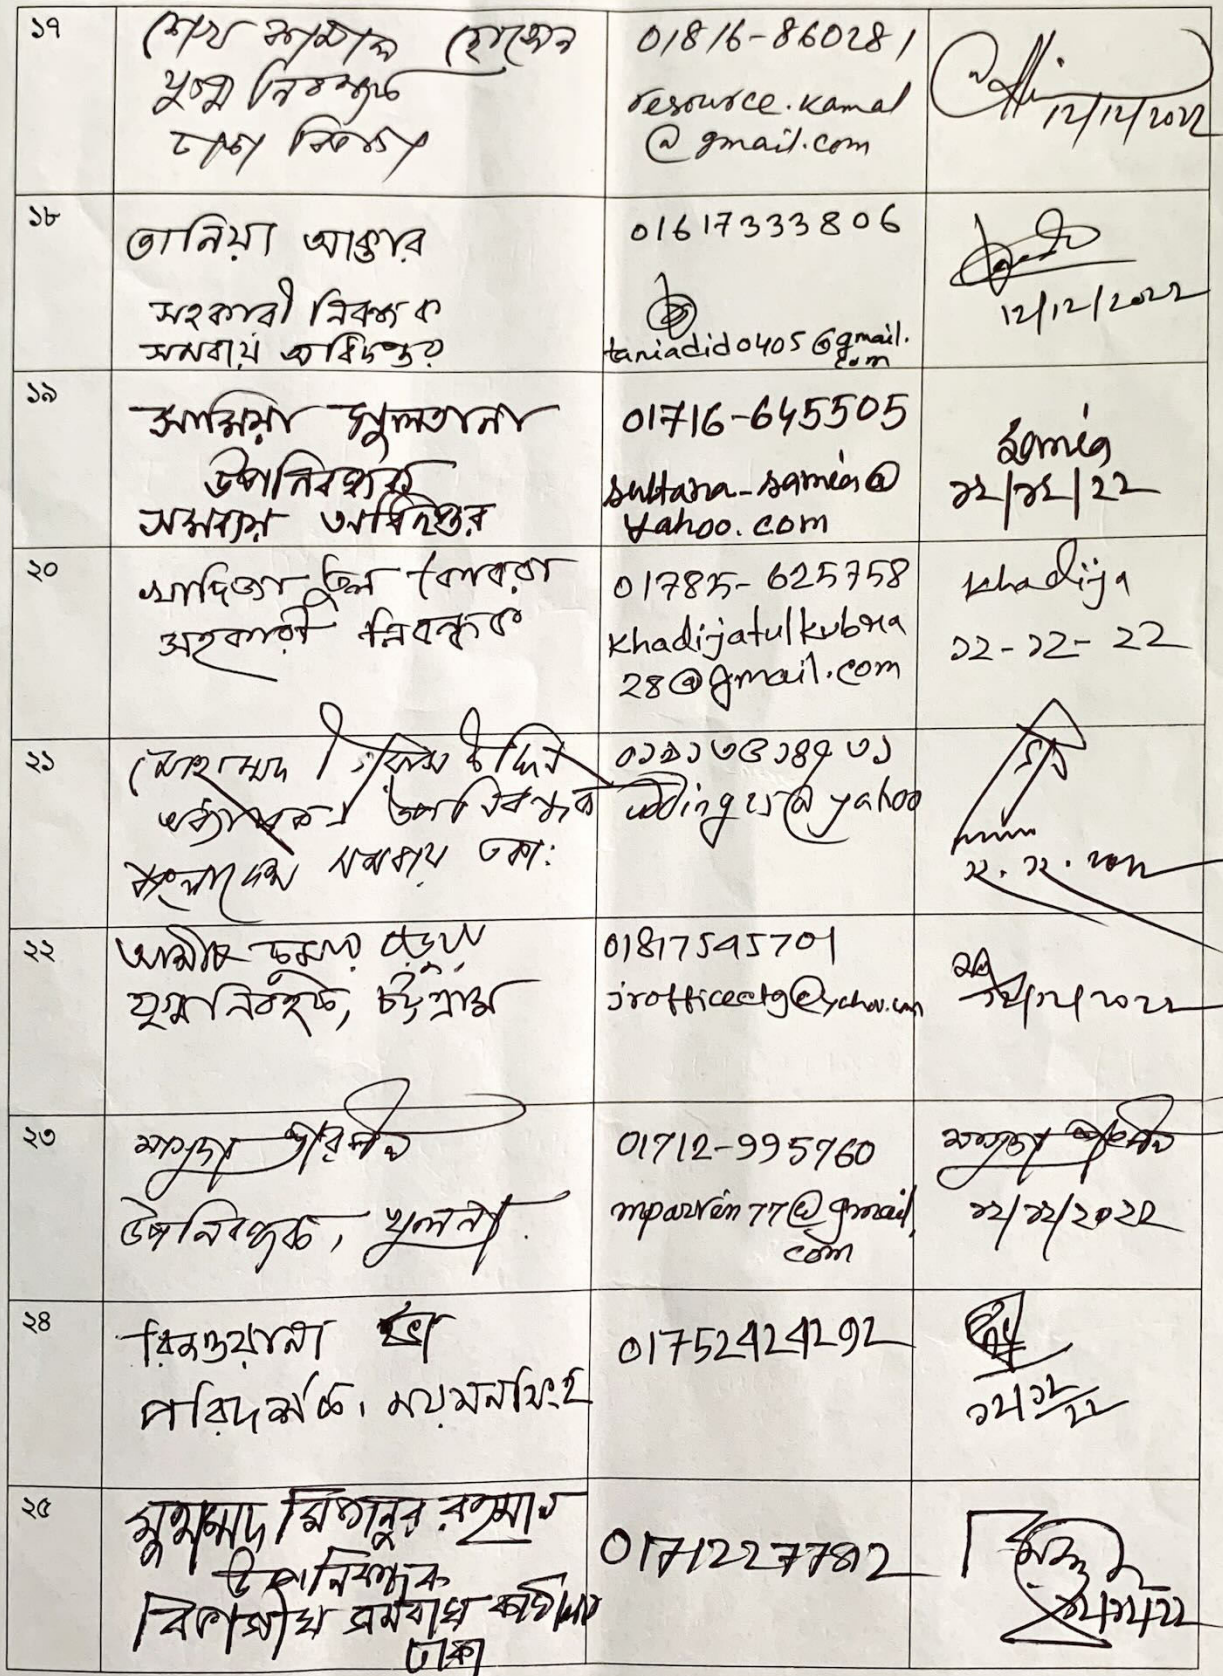 ১৭
শেখ কামাল হোসেন
যুগ্ম নিবন্ধক
ঢাকা বিভাগ
01816-860281
resource.kamal
@gmail.com
12/12/2022
১৮
তানিয়া আক্তার
সহকারী নিবন্ধক
সমবায় অধিদপ্তর
01617333806
taniadid0405@gmail.
com
12/12/2022
১৯
সামিয়া সুলতানা
উপনিবন্ধক
সমবায় অধিদপ্তর
01716-645505
sultana-samia@
yahoo.com
Samia
১২/১২/২২
২০
খাদিজা তুল কোবরা
সহকারী নিবন্ধক
01785-625758
khadijatulkubra
28@gmail.com
Khadija
১২-১২-২২
২১
মোহাম্মদ উদ্দিন
উপ নিবন্ধক
বাংলাদেশ সমবায়
@yahoo
২২
আশীষ কুমার বড়ুয়া
যুগ্মনিবন্ধক, চট্টগ্রাম
01817545701
jrofficectg@yahoo.com
১২/১২/২০২২
২৩
মাসুদা পারভীন
উপনিবন্ধক, খুলনা
01712-995760
mparvin77@gmail.
com
মাসুদা পারভীন
১২/১২/২০২২
২৪
রিজওয়ানা
পরিদর্শক, ময়মনসিংহ
01752424292
১২/১২/২২
২৫
মুহাম্মাদ মিজানুর রহমান
উপনিবন্ধক
বিভাগীয় সমবায় কার্যালয়
ঢাকা
0171227782
১২/১২/২২